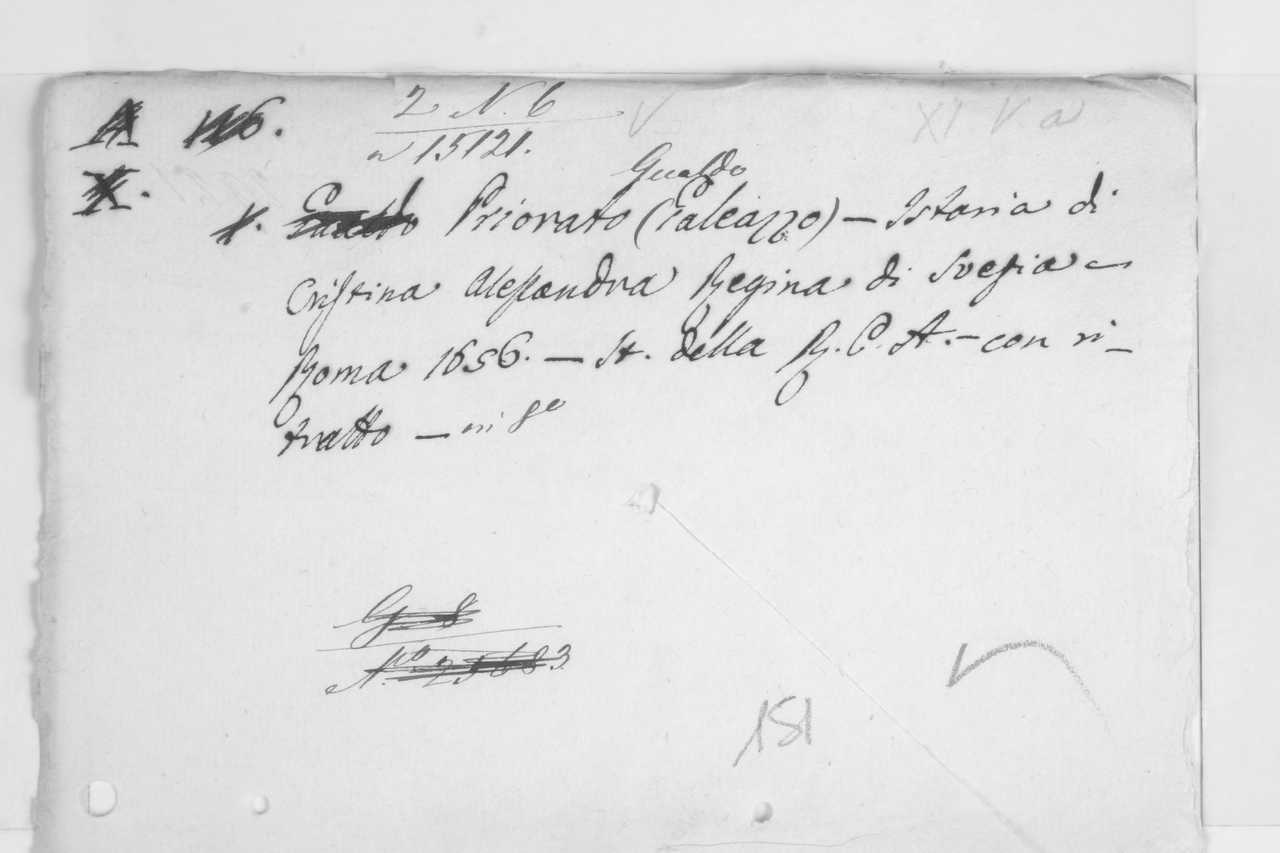 2 N. 6
XI V a
n 15121.
Gualdo
Priorato (Galeazzo) – Istoria di
Cristina Alessandra Regina di Svezia –
Roma 1656. – St. della R. C. A. – con ri_
tratto – in 8º
G 8
N.º 25683
181